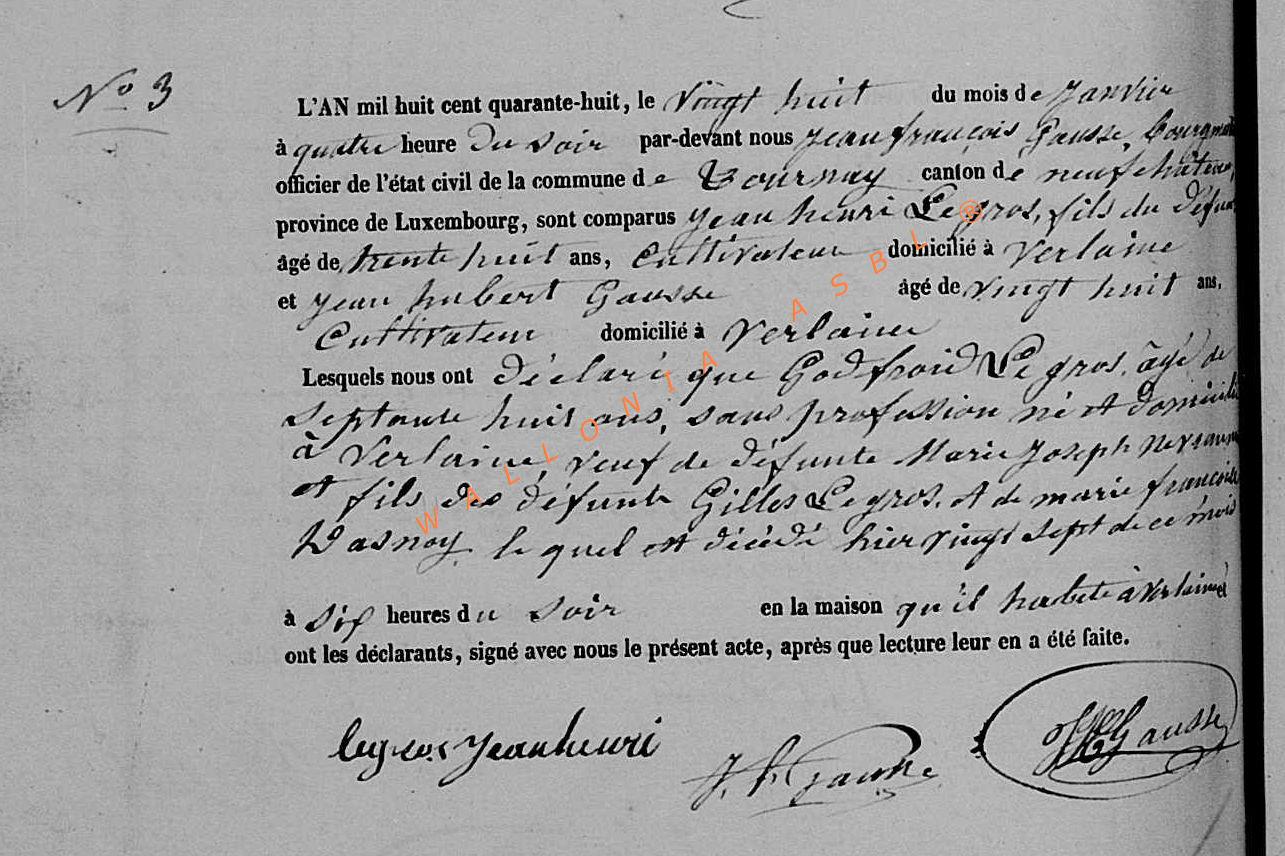 No 3
L'AN mil huit cent quarante-huit, le vingt huit du mois de janvier
à quatre heure du soir par-devant nous jean françois Gausse, Bourgm
officier de l'état civil de la commune de Tournay canton de neufchateau,
province de Luxembourg, sont comparus jean henri Legros, fils du défun
âgé de trente huit ans, Cultivateur domicilié à Verlaine
et jean hubert Gausse âgé de vingt huit ans,
Cultivateur domicilié à Verlaine
Lesquels nous ont déclaré que Godfroid Legros, âgé de
septante huit ans, sans profession né et domicilié
à Verlaine, veuf de défunte Marie Joseph
et fils des défunts Gilles Legros, et de marie françoise
Wasnoy, le quel est décédé hier vingt sept de ce mois
à six heures du soir en la maison qu'il habite à Verlaine et
ont les déclarants, signé avec nous le présent acte, après que lecture leur en a été faite.
legros jean henri
J. h. Gausse
Gausse
WALLONIA ASBL ®